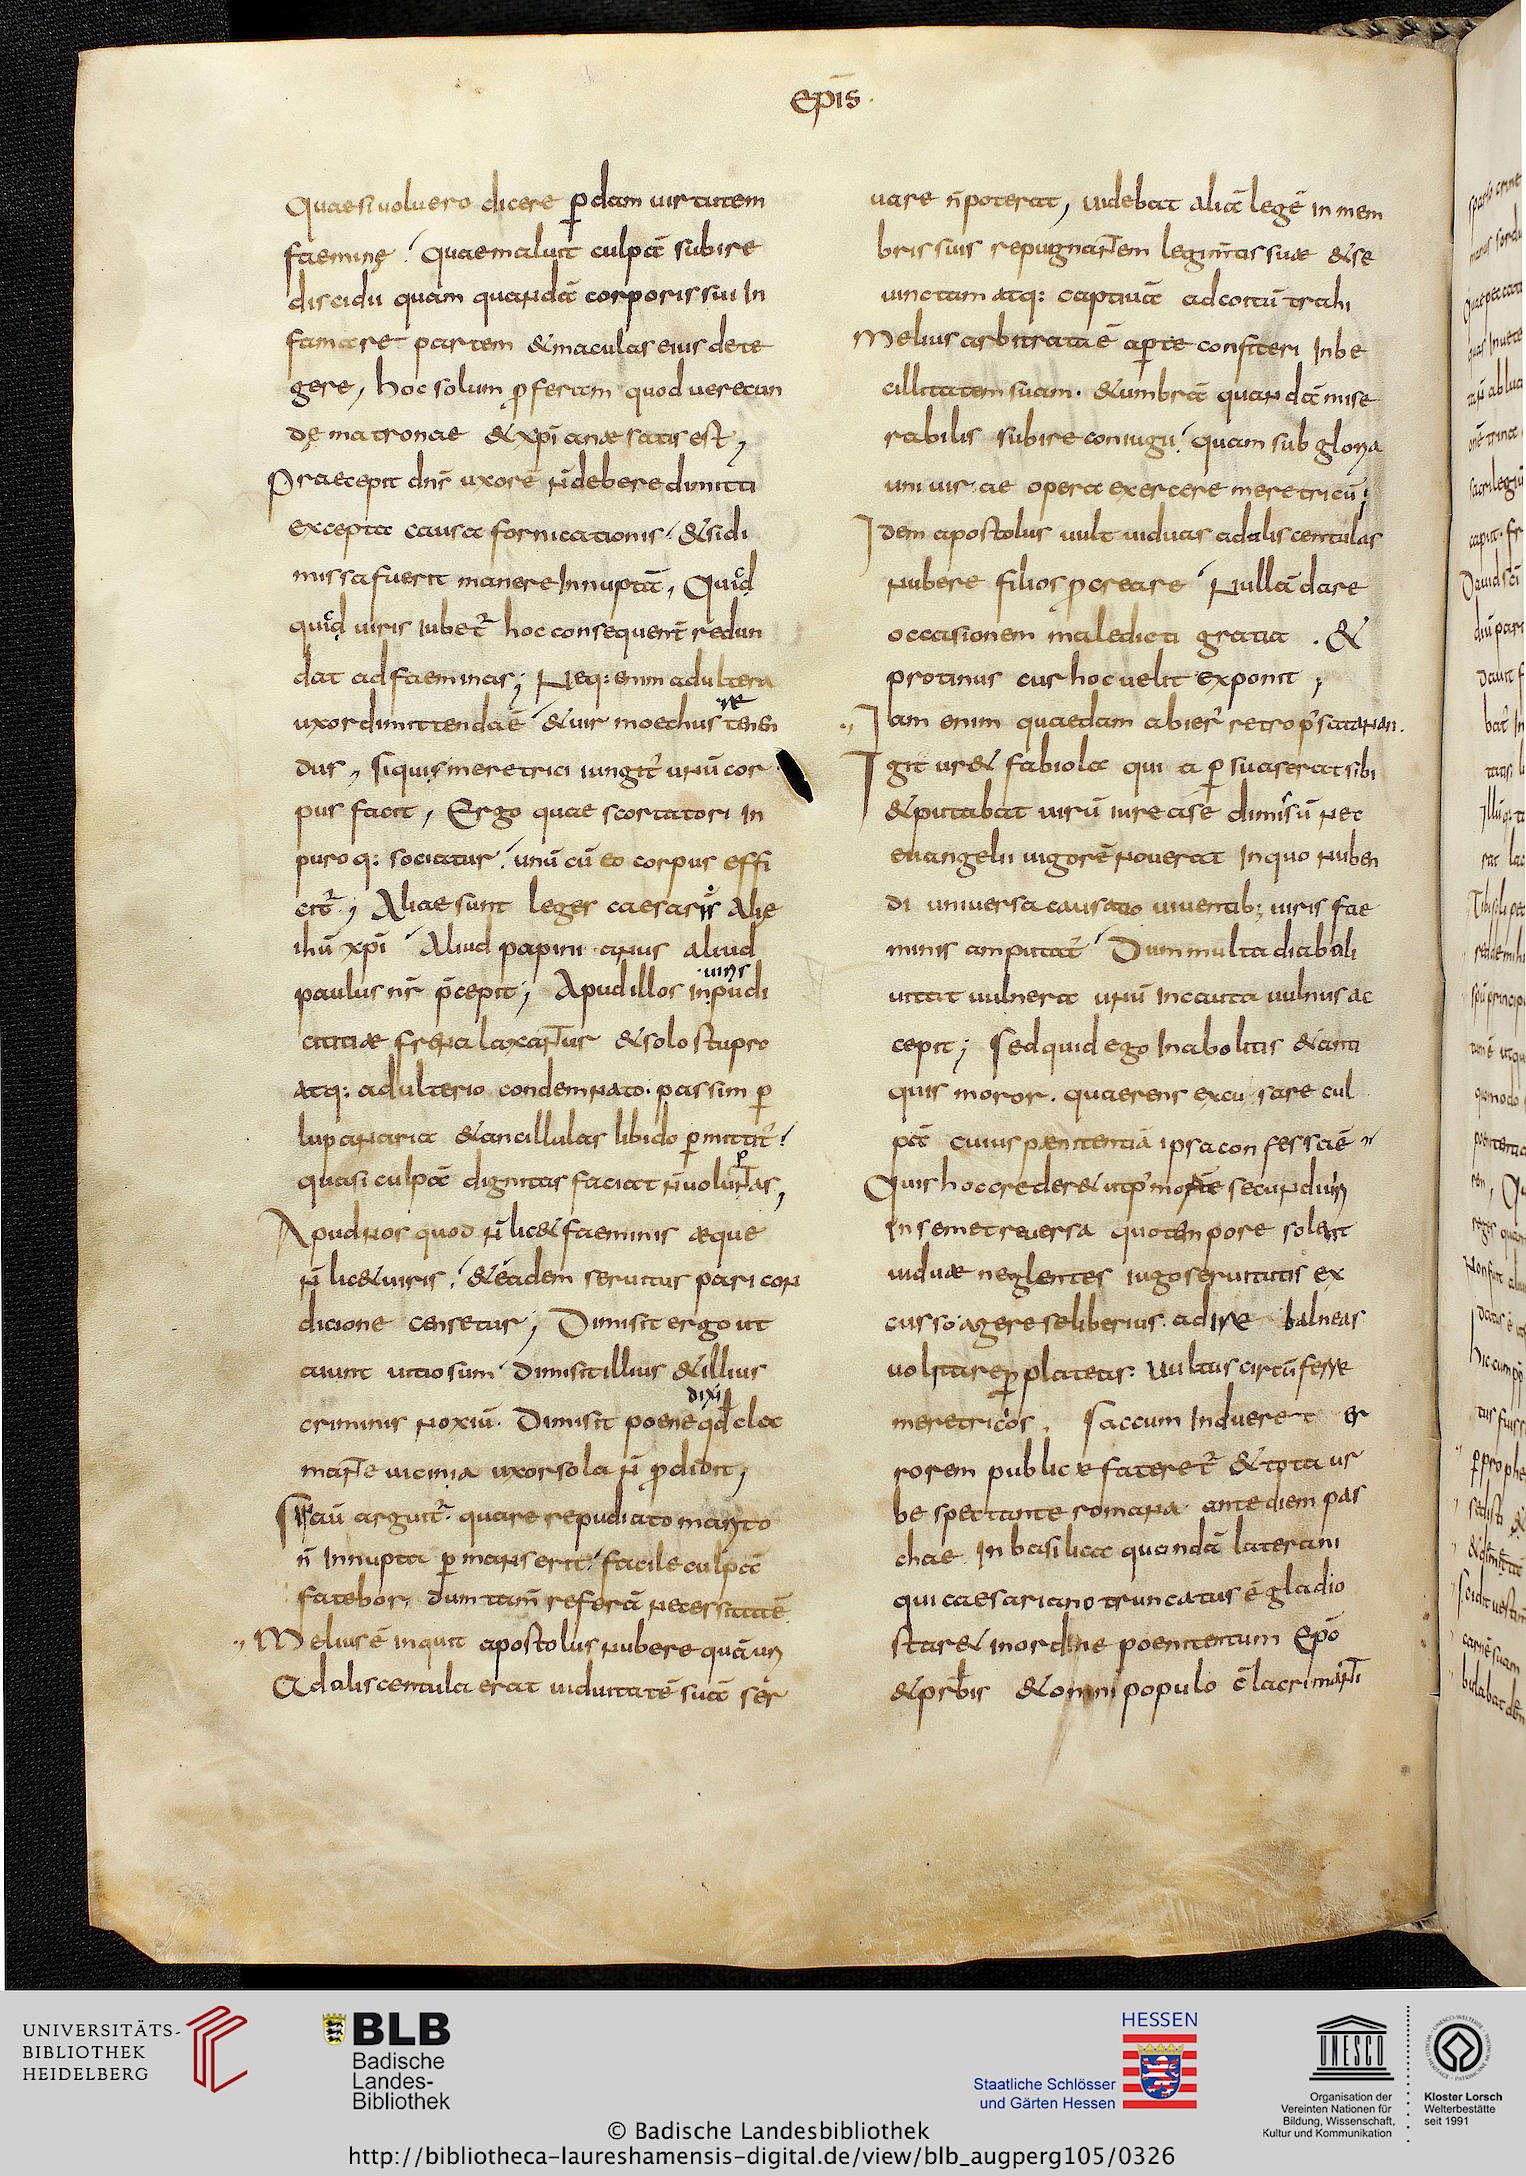 epis̄.
Quae si voluero dicere ꝑdam virtutem
faeminę quae maluit culpā subire
discidii quam quandā corporis sui in
famare partem & maculas eius dete
gere, hoc solum ꝓferam quod verecun
dę matronae & xp̄ianæ satis est,
Praecepit dn̄s uxorē n̄ debere dimitti
excepta causa fornicationis & si di
missa fuerit manere innuptā, Quid
quid viris iubet̄ hoc consequent̄ redun
dat ad faeminas; Neq: enim adultera
uxor dimittenda ē & vir moechus tenen
dus, si quis meretrici iungit̄ unū cor
pus facit, Ergo quae scortatori in
puroq: sociatur unū cū eo corpus effi
cit̄; Aliae sunt leges caesaris alię
ihū xp̄i Aliud papinianus aliud
paulus nr̄ p̄cepit; Apud illos viris inpudi
citiæ frena laxantur & solo stupro
atq: adulterio condemnato passim ꝑ
lupanaria & ancillulas libido ꝑmittit̄
quasi culpā dignitas faciat n̄ voluntas,
Apud nos quod n̄ lic& faeminis æque
n̄ lic& viris & eadem servitus pari con
dicione censetur; Dimisit ergo ut
aiunt vitiosum Dimisit illius & illius
criminis noxiū. Dimisit poene dixi qd̄ cla
mante vicinia uxor sola n̄ ꝓdidit,
Sin aū arguit̄ quare repudiato marito
n̄ innupta ꝑmanserit facile culpā
fatebor, dum tam̄ referā necessitatē
Melius ē inquit apostolus nubere quā uri
Adaliscentula erat viduitatē suā ser
vare n̄ poterat, videbat aliā legē in mem
bris suis repugnantem legi m̄tis suæ & se
vinctam atq: captivā ad coitū trahi
Melius arbitrata ē aꝑte confiteri inbe
cillitatem suam. & umbrā quandā mise
rabilis subire coniugii quam sub gloria
univiræ opera exercere meretricū;
Idem apostolus vult viduas adaliscentulas
nubere filios ꝓcreare Nullā dare
occasionem maledicti gratia. &
protinus cur hoc velit exponit;
Iam enim quaedam abier̄ retro p̄ satanan.
Igitur & fabiola quia ꝑsuaserat sibi
& putabat virū iure a se dimisū nec
evangelii vigorē noverat in quo nuben
di universa causatio viventib; viris fae
minis amputat̄ Dum multa diaboli
vitat vulnera unū incauta vulnus ac
cepit; Sed quid ego in abolitis & anti
quis moror. quaerens excusare cul
pā cuius pænitentiā ipsa confessa ē
Quis hoc creder& ut p̄ mortē secundi viri
in semet reversa quo tempore solent
viduæ neglentes iugo servitutis ex
cusso agere se liberius. adire balneas
volitare ꝑ plateas: vultus circūferre
meretricios. saccum indueret er
rorem publicæ fateret̄ & tota ur
be spectante romana ante diem pas
chae in basilica quondā laterani
qui caesariano truncatus ē gladio
star& in ordine poenitentum Ep̄o
& prb̄is & omni populo c̄lacrimanti
UNIVERSITÄTS-
BIBLIOTHEK
HEIDELBERG
BLB
Badische
Landes-
Bibliothek
HESSEN
Staatliche Schlösser
und Gärten Hessen
UNESCO
Organisation der
Vereinten Nationen für
Bildung, Wissenschaft,
Kultur und Kommunikation
Kloster Lorsch
Welterbestätte
seit 1991
© Badische Landesbibliothek
http://bibliotheca-laureshamensis-digital.de/view/blb_augperg105/0326